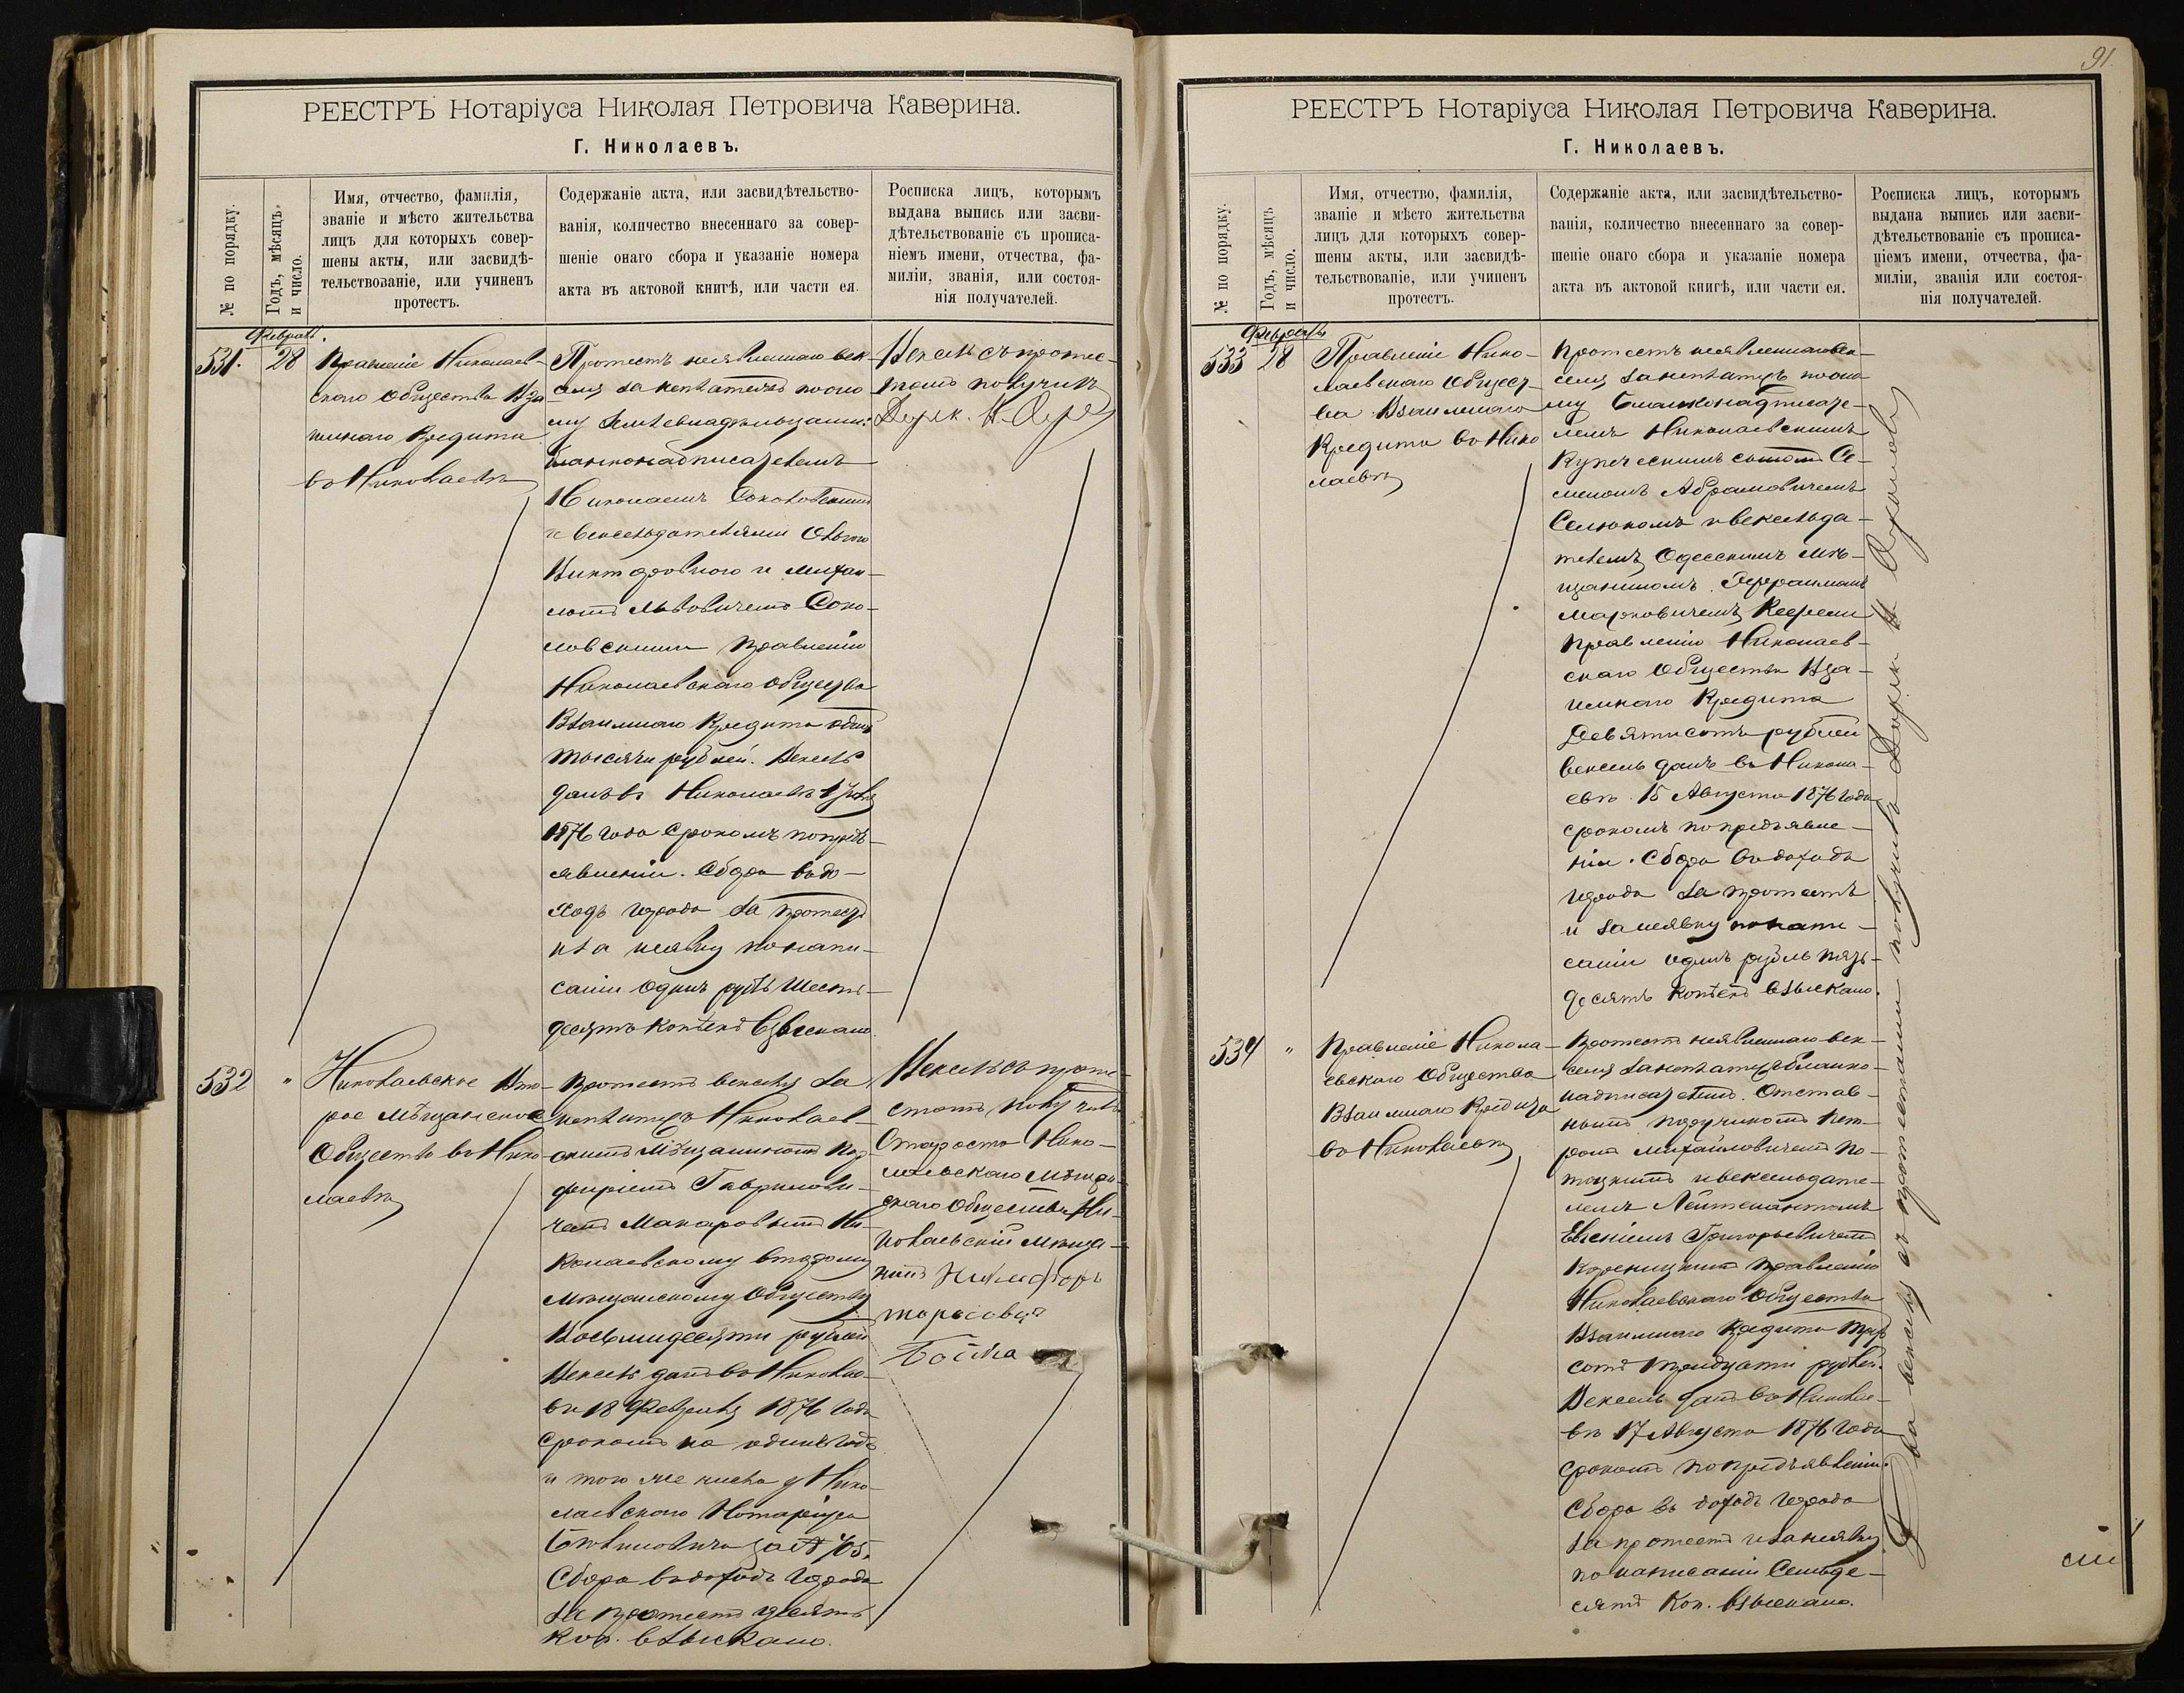 РЕЕСТРЪ Нотаріуса Николая Петровича Каверина.
Г. Николаевъ.
№ по порядку.
Годъ, мѣсяцъ
и число.
Имя, отчество, фамилія,
званіе и мѣсто жительства
лицъ для которыхъ совер-
шены акты, или засвидѣ-
тельствованіе, или учиненъ
протестъ.
Содержаніе акта, или засвидѣтельство-
ванія, количество внесеннаго за совер-
шеніе онаго сбора и указаніе номера
акта въ актовой книгѣ, или части ея.
Росписка лицъ, которымъ
выдана выпись или засви-
дѣтельствованіе съ прописа-
ніемъ имени, отчества, фа-
миліи, званія, или состоя-
нія получателей.
Февраль.
531. 28
Правленіе Николаев-
скаго Общества Вза-
имнаго Кредита
въ Николаевѣ
Протестъ неявленнаго век-
селя за неплатежъ по оно-
му
бланконадписателемъ
Николаемъ Соколовскимъ
и векселедателями
и Михаи-
ломъ Львовичемъ Соко-
ловскими Правленію
Николаевскаго Общества
Взаимнаго Кредита одной
тысячи рублей. Вексель
данъ въ Николаевѣ 1
1876 года срокомъ по предъ-
явленіи. Сбора въ до-
ходъ города за протестъ
и за неявку по напи-
саніи одинъ рубль шесть-
десятъ копѣекъ взыскано.
Вексель съ протес-
томъ получилъ
532 "
Николаевское Вто-
рое Мѣщанское
Общество въ Нико-
лаевѣ
Протестъ векселя за
неплатежъ Николаев-
скимъ Мѣщаниномъ Пор-
фиріемъ Гаврилови-
чемъ Макаровымъ Ни-
колаевскому Второму
Мѣщанскому Обществу
Восьмидесяти рублей
Вексель данъ въ Николае-
вѣ 18 Февраля 1876 года
срокомъ на одинъ годъ
и того же числа у Нико-
лаевскаго Нотаріуса
за № 705.
Сбора въ доходъ города
за протестъ десять
коп. взыскано.
Вексель съ проте-
стомъ получилъ
Староста Нико-
лаевскаго Мѣщан-
скаго Общества Ни-
колаевскій Мѣща-
нинъ Никифоръ
91.
РЕЕСТРЪ Нотаріуса Николая Петровича Каверина.
Г. Николаевъ.
№ по порядку.
Годъ, мѣсяцъ
и число.
Имя, отчество, фамилія,
званіе и мѣсто жительства
лицъ для которыхъ совер-
шены акты, или засвидѣ-
тельствованіе, или учиненъ
протестъ.
Содержаніе акта, или засвидѣтельство-
ванія, количество внесеннаго за совер-
шеніе онаго сбора и указаніе номера
акта въ актовой книгѣ, или части ея.
Росписка лицъ, которымъ
выдана выпись или засви-
дѣтельствованіе съ прописа-
ніемъ имени, отчества, фа-
миліи, званія или состоя-
нія получателей.
Февраль
533 28
Правленіе Нико-
лаевскаго Общест-
ва Взаимнаго
Кредита въ Нико
лаевѣ
Протестъ неявленнаго век-
селя за неплатежъ по оно-
му бланконадписате-
лемъ Николаевскимъ
Купеческимъ сыномъ Се-
меномъ Абрамовичемъ
и векселеда-
телемъ Одесскимъ Мѣ-
щаниномъ
Марковичемъ
Правленію Николаев-
скаго Общества Вза-
имнаго Кредита
Девятисотъ рублей
вексель данъ въ Никола-
евѣ 15 Августа 1876 года
срокомъ по предъявле-
ніи. Сбора въ доходъ
города за протестъ
и за неявку по напи-
саніи одинъ рубль пять-
десятъ копѣекъ взыскано.
534 "
Правленіе Никола-
евскаго Общества
Взаимнаго Кредита
въ Николаевѣ
Протестъ неявленнаго век-
селя за неплатежъ бланко-
надписателемъ Отстав-
нымъ поручикомъ Пет-
ромъ Михайловичемъ По-
тоцкимъ и векселедате-
лемъ Лейтенантомъ
Евгеніемъ Григорьевичемъ
Кореницкимъ Правленію
Николаевскаго Общества
Взаимнаго Кредита Трех
сотъ тридцати рублей.
Вексель данъ въ Николае-
вѣ 17 Августа 1876 года
срокомъ по предъявленіи.
Сбора въ доходъ города
за протестъ и за неявку
по написаніи Семьде-
сятъ коп. взыскано.
Два векселя съ протестами получилъ